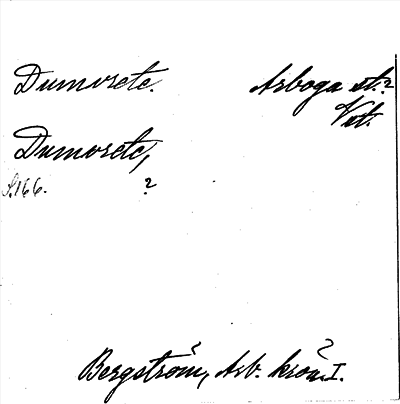 Dumorete. Arboga st.?
Vstl.
Dumorete,
S. 166. ?
Bergström, Arb. krön. I.